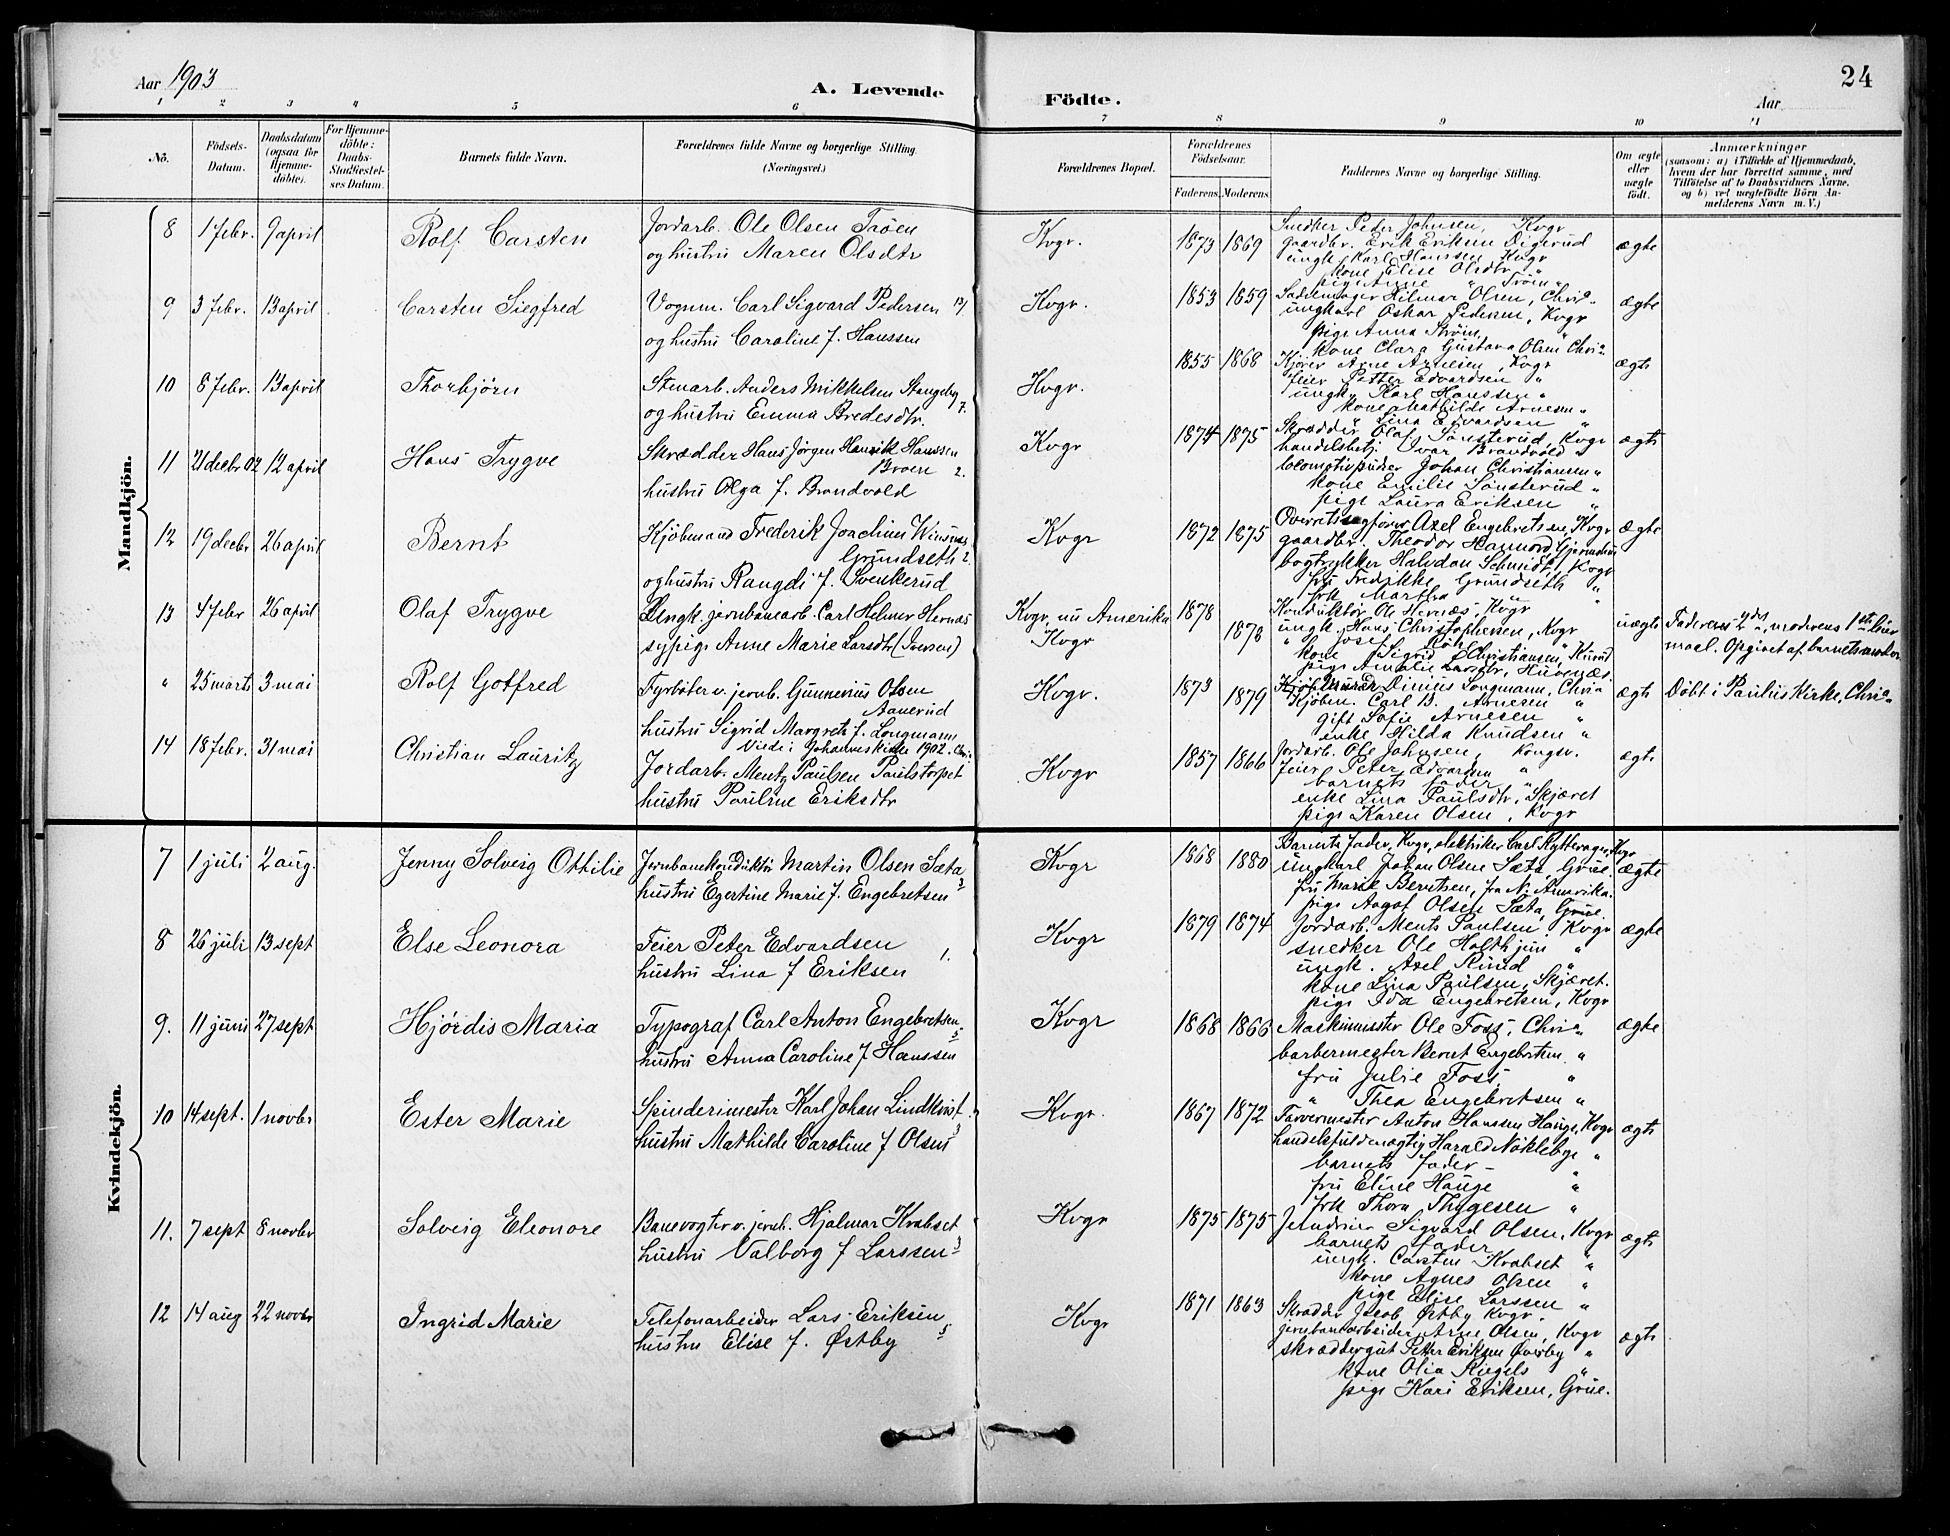 24
Aar 1903
A. Levende Födte.
Aar
1 2 3 4 5 6 7 8 9 10 11
No.
Födsels-Datum.
Daabsdatum (ogsaa for Hjemme-döbte).
For Hjemme-döbte: Daabs-Stadfæstel-ses Datum.
Barnets fulde Navn.
Forældrenes fulde Navne og borgerlige Stilling.
(Næringsvei.)
Forældrenes Bopæl.
Forældrenes Födselsaar.
Faderens. Moderens.
Faddernes Navne og borgerlige Stilling.
Om ægte eller uægte födt.
Anmærkninger
(saasom: a) i Tilfælde af Hjemmedaab, hvem der har forrettet samme, med Tilföielse af to Daabsvidners Navne, og b) ved uægtefödte Börn An-melderens Navn m. V.)
Mandkjön.
8 1 febr. 9 april Rolf Carsten
Jordarb. Ole Olsen Trøen
og hustru Maren Olsdtr
Kvgr. 1873 1869
Snedker Peter Johnsen, Kvgr
gaardbr. Erik Eriksen Digerud
ungk. Karl Hanssen Kvgr
kone Elise Olsdtr "
pige Anne " Trøen "
ægte
9 3 febr. 13 april Carsten Siegfred
Vognm. Carl Sigvard Pedersen
og hustru Caroline f. Hanssen
Kvgr. 1853 1859
Sadelmager Hilmar Olsen, Chria
ungkarl Oskar Pedersen, Kvgr
pige Anna Strøm, "
kone Clara Gustava Olsen Chria
ægte
10 8 febr. 13 april Thorbjørn
Stenarb. Anders Mikkelsen Stangeby 7.
og hustru Emma Aredesdtr.
Kvgr. 1855 1868
Kjører Arne Arnesen, Kvgr
feier Petter Edvardsen "
ungk. Karl Hanssen "
kone Mathilde Arnesen "
" Lina Edvardsen "
ægte
11 21 decbr 02 12 april Hans Trygve
Skrædder Hans Jørgen Henrik Hanssen
Broen 2.
hustru Olga f. Brandvold
Kvgr 1874 1875
Skrædder Olaf Sønsterud, Kvgr
handelsbetj. Ivar Brandvold "
locomotivpudser Johan Christiansen "
kone Emilie Sønsterud "
pige Laura Eriksen "
ægte
12 19 decbr 26 april Bernt
Kjøbmand Frederik Joachim Winsnes
Grundseth 2.
og hustru Rangdi f. Svenkerud
Kvgr 1872 1875
Overretssagfører Axel Engebretsen, Kvgr
gaardbr. Theodor Hammer,
bogtrykker Halvdan Schmidt, Kvgr
fru Fredrikke Grundseth "
frk Martha " "
ægte
13 4 febr 26 april Olaf Trygve
Ungk. jernbanearb. Carl Helmer Hernæs
sypige Anne Marie Larsdtr (Iversen)
Kvgr, nu Amerika
Kvgr
1878
1878
Konduktør Ole Hernæs, Kvgr
ungk. Hans Christophersen, Kvgr
kone Sigrid Christiansen,
pige Amalie Larsdtr,
uægte
Faderens 2det, moderens 1ste leier
maal. Opgivet af barnets moder.
" 25 marts 3 mai Rolf Gotfred
Fyrbøter v. jernb. Gunnerius Olsen
Aanerud
hustru Sigrid Margrete f. Longmann
Viede i Johanneskirke 1902. Chria
Kvgr. 1873 1879
Dinius Longmann, Chria
Kjøbm. Carl B. Arnesen "
gift Sofie Arnesen "
enke Hilda Knudsen "
ægte
Døbt i Paulus Kirke, Chria
14 18 febr. 31 mai Christian Lauritz
Jordarb. Mentz Paulsen Paulstorpet
hustru Pauline Eriksdtr
Kvgr 1857 1866
Jordarb. Ole Johnsen, Kongsv.
feier Peter Edvardsen "
barnets fader "
enke Lina Paulsdtr, Skjæret
pige Karen Olsen, Kvgr
ægte
Kvindekjön.
7 1 juli 2 aug. Jenny Solveig Ottilie
Jernbanekonduktør Martin Olsen Sæta 3
hustru Egertine Marie f. Engebretsen
Kvgr 1868 1880
Barnets fader, Kvgr, elektriker Carl Rytterager, Kvgr
ungkarl Johan Olsen Sæta, Grue.
fru Marie Berntsen, fra N. Amerika.
pige Aagot Olsen Sæta, Grue.
ægte
8 26 juli 13 sept Else Leonora
Feier Peter Edvardsen 1.
hustru Lina f Eriksen
Kvgr 1879 1874
Jordarb. Ments Paulsen Kvgr
snedker Ole Holth jun "
ungk. Axel Rund "
kone Lina Paulsen, Skjæret.
pige Ida Engebretsen, Kvgr
ægte
9. 11 juni 27 sept Hjørdis Maria
Typograf Carl Anton Engebretsen 5
hustru Anna Caroline f Hanssen
Kvgr 1868 1866
Maskinmester Ole Foss, Chria
barbermester Bernt Engebretsen "
fru Julie Foss, "
" Thea Engebretsen "
ægte
10 14 sept. 1 novbr Ester Marie
Spinderimester Karl Johan Lindkvist 3
hustru Mathilde Caroline f Olsen
Kvgr. 1867 1872
Farvermester Anton Hanssen Hauge, Kvgr
handelsfuldmægtig Harald Nøkleby "
barnets fader - "
fru Eline Hauge "
frk Thora Thygesen "
ægte
11. 7 sept 8 novbr Solveig Eleonore
Banevogter v. jernb. Hjalmar Krabset 3
hustru Valborg f Larssen
Kvgr 1875 1875
Sigvard Olsen, Kvgr
barnets fader "
ungk. Carsten Krabset "
kone Agnes Olsen "
pige Elise Larssen "
ægte
12 14 aug 22 novbr Ingrid Marie
Telefonarbeider Lars Eriksen 5
hustru Elise f. Østby
Kvgr 1871 1863
Skrædder Jacob Østby Kvgr.
jernbanearbeider Arne Olsen, Kvgr
skræddergut Petter Eriksen Øverby "
kone Olia Riegels "
pige Kari Eriksen, Grue.
ægte